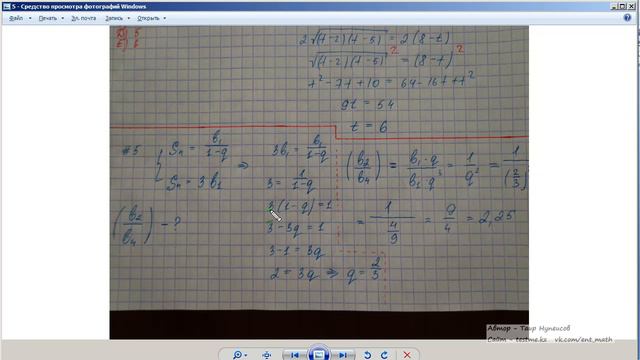 5 - Средство просмотра фотографий Windows
Файл Печать Эл. почта Запись Открыть
2√(t-2)(t-5) = 2(8-t)
√(t-2)(t-5)² = (8-t)²
t² - 7t + 10 = 64 - 16t + t²
9t = 54
t = 6
#5 { Sₙ = b₁/(1-q) ⇒ 3b₁ = b₁/(1-q)
Sₙ = 3b₁
3 = 1/(1-q)
(b₂/b₄) - ?
3(1-q) = 1
3 - 3q = 1
3 - 1 = 3q
2 = 3q ⇒ q = 2/3
(b₂/b₄) = b₁·q/b₁q³ = 1/q² = 1/(2/3)
= 1/(4/9) = 9/4 = 2,25
Автор - Таир Нуписов
Сайт - testme.kz vk.com/ent_math